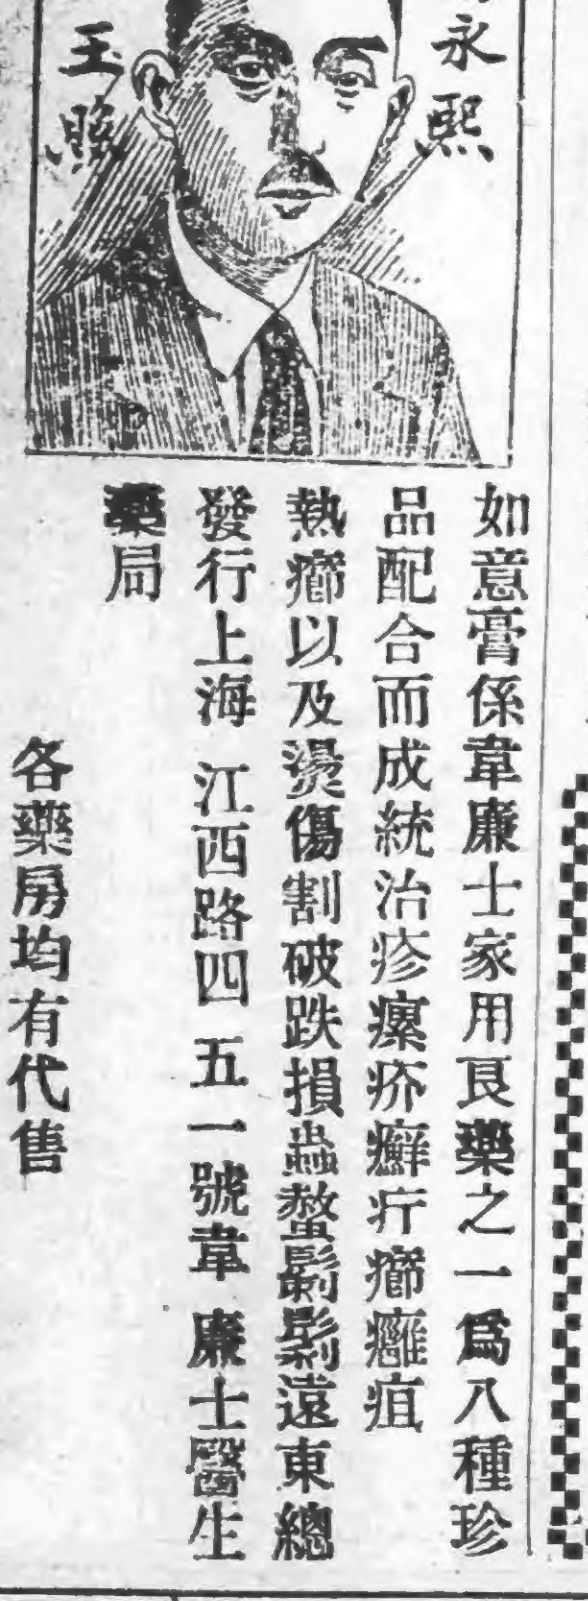 永熙
玉照
如意膏係韋廉士家用良藥之一爲八種珍
品配合而成統治疹瘰疥癬疔癤癰疽
熱癤以及燙傷割破跌損蟲螫剃鬎遠東總
發行上海江西路四五一號韋廉士醫生
藥局
各藥房均有代售